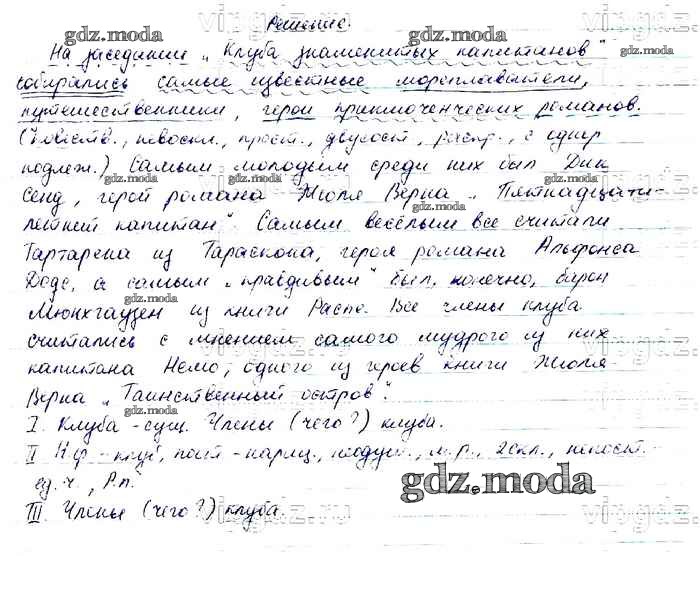 Решение.
На заседании „Клуба знаменитых капитанов"
собирались самые известные мореплаватели,
путешественники, герои приключенческих романов.
(Повеств., невоскл., прост., двусост., распр., с однор
подлеж.) Самым молодым среди них был Дик
Сенд, герой романа Жюля Верна „Пятнадцати-
летний капитан". Самым весёлым все считали
Тартарена из Тараскона, героя романа Альфонса
Доде, а самым „правдивым" был, конечно, барон
Мюнхгаузен из книги Распе. Все члены клуба
считались с мнением самого мудрого из них
капитана Немо, одного из героев книги Жюля
Верна „Таинственный остров".
I. Клуба - сущ. Члены (чего?) клуба.
II Н.ф. - клуб, пост - нариц., неодуш., м.р., 2скл., непост. -
ед.ч., Р.п.
III. Члены (чего?) клуба.
gdz.moda